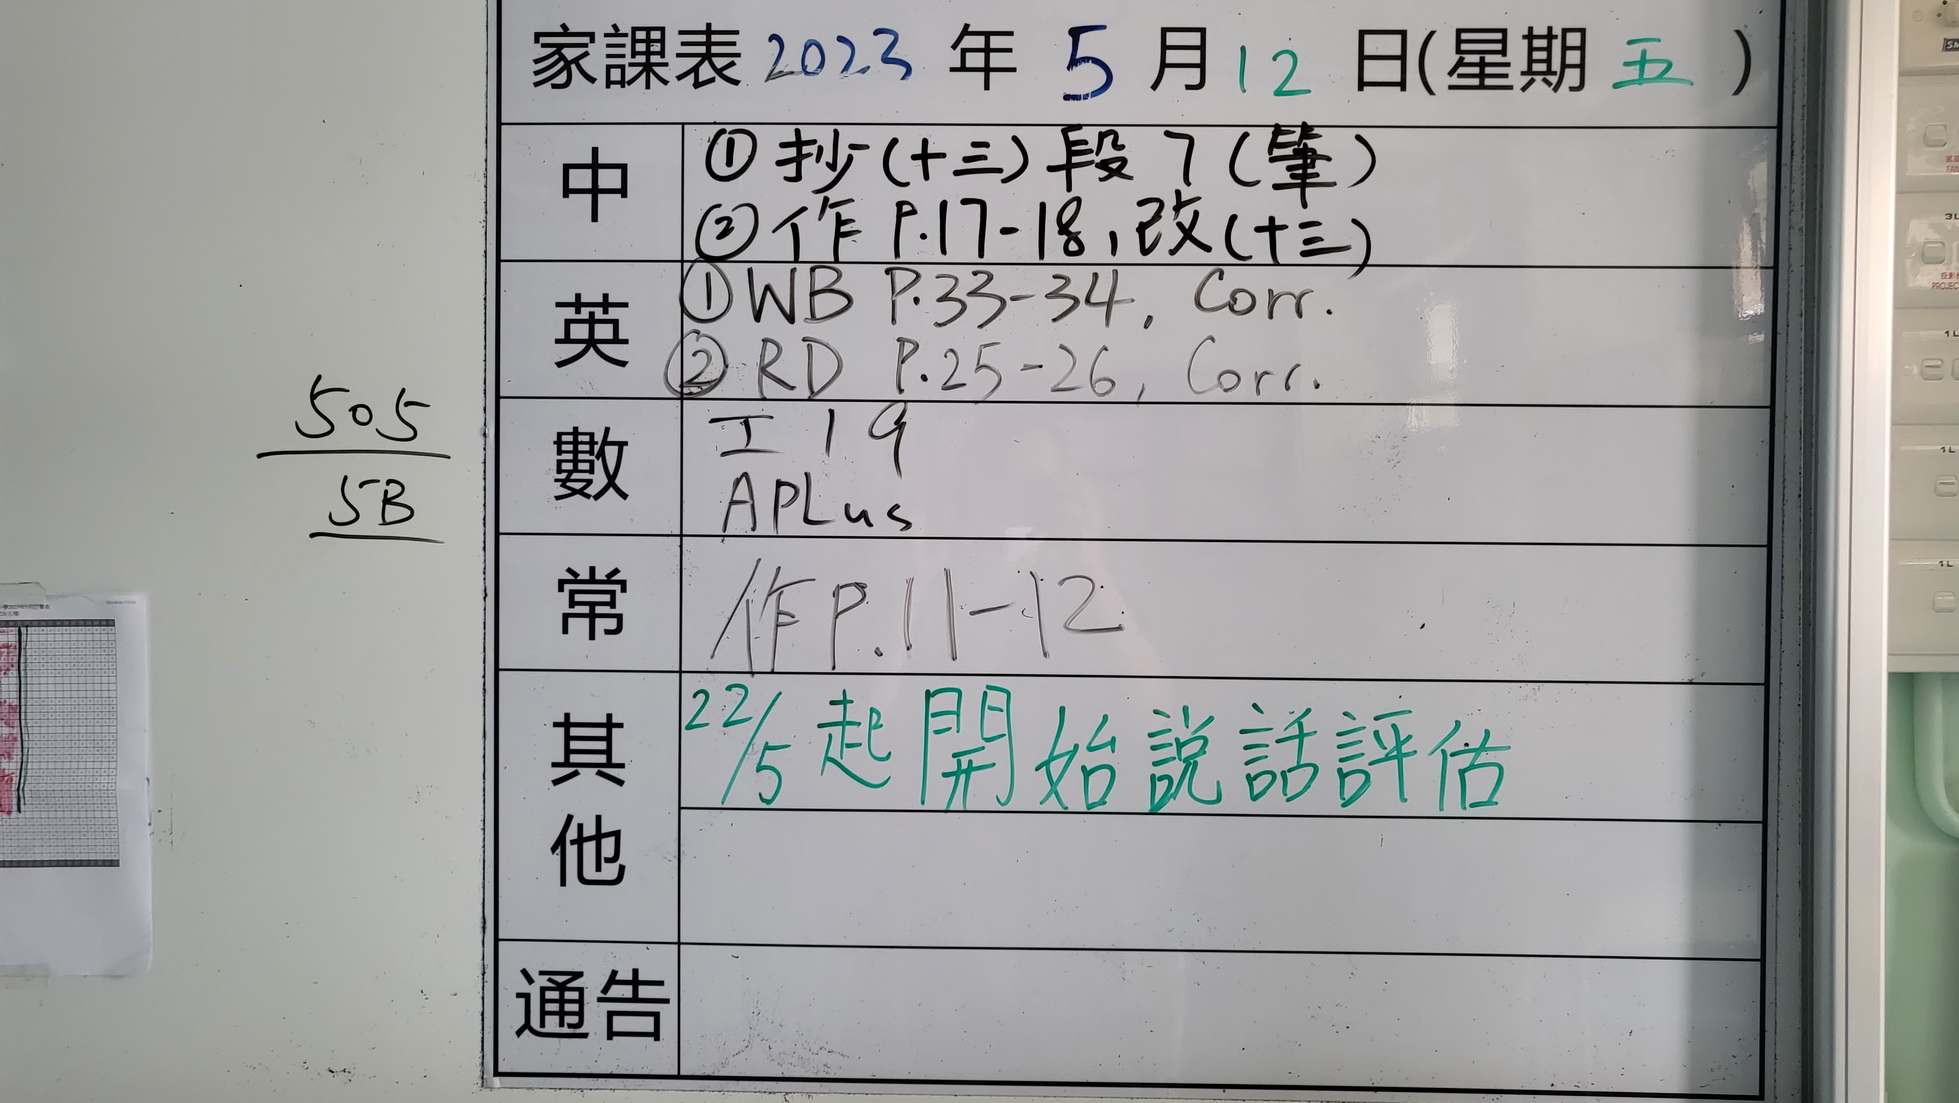 家課表 2023 年 5 月 12 日(星期 五 )
中
① 抄(十三)段7(筆)
② 作 P.17-18,改(十三)
英
① WB P.33-34, Corr.
② RD P.25-26, Corr.
505
5B
數
工19
APLus
常
作P.11-12
其他
22/5 起開始說話評估
通告
3L
1L
1L
1L